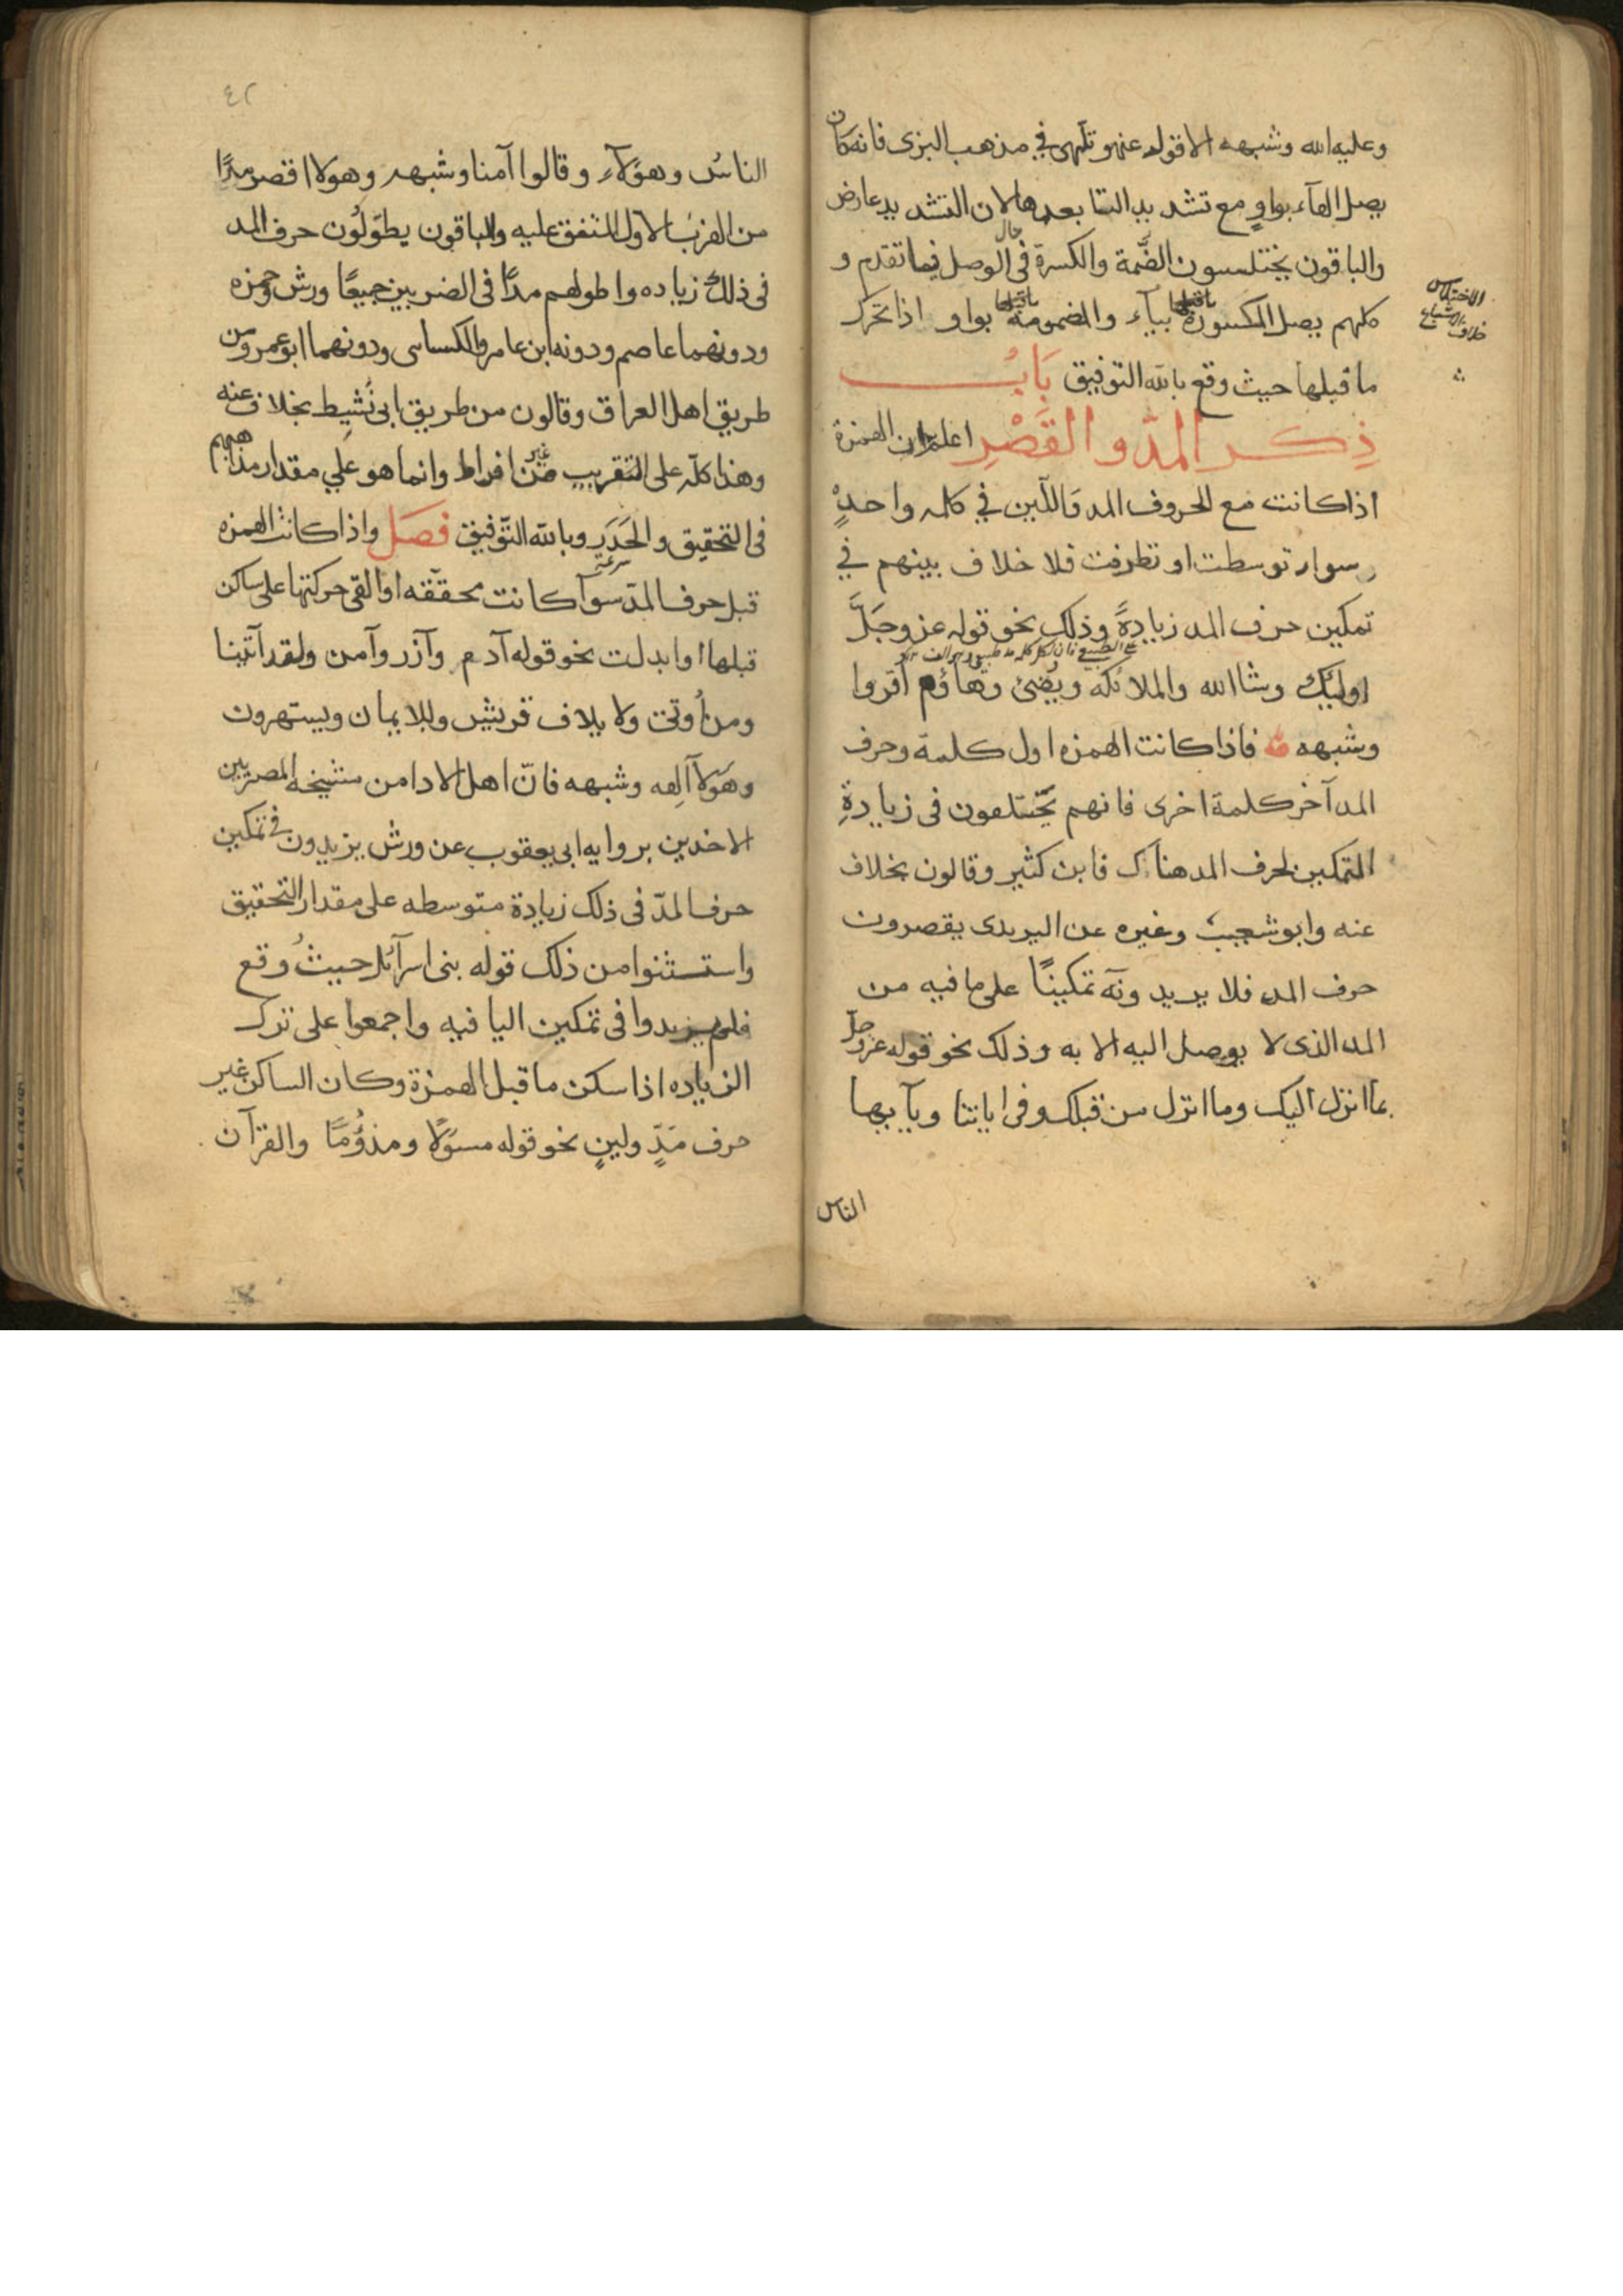 وعليه الله وشبهه الا قوله عنهو تلهى في مذهب البزى فانه كان
يصل الهآء بواوٍ مع تشديد التا بعدها لان التشديد عارض
والباقون يختلسون الضَّمة والكسرة فى حال الوصل فيما تقدم و
كلهم يصل المكسورة ما قبلها بيآء والمضمومة ما قبلها بواو اذا تحرك
ما قبلها حيث وقع بالله التوفيق بَابُ
ذِكر المدّ والقَصْرِ اعلم ان الهمزة
اذا كانت مع الحروف المد وَاللّين في كلمه واحدةٍ
سوا توسطت او تطرفت فلا خلاف بينهم في
تمكين حرف المد زيادةً وذلك نحو قوله عز وجَلَّ
اوليٓك وشا الله والملائكه ويُضئ وهاؤم اقروا
وشبهه فاذا كانت الهمزه اول كلمة وحرف
المد آخر كلمة اخرى فانهم يختلفون فى زيادةِ
التمكين لحرف المد هناك فابن كثير وقالون بخلاف
عنه وابو شعيب وغيره عن اليزيدى يقصرون
حرف المد فلا يزيدونه تمكينًا على ما فيه من
المد الذى لا يوصل اليه الا به وذلك نحو قوله عز وجل
بما انزل اليك وما انزل من قبلك وفى اياتنا ويآ ايها
الناس
الاختلاس
خلاف الاشباع
٤٢
الناسُ وهؤلآء وقالوا آمنا وشبهه وهولا اقصر مدًّا
من الضرب الاول المتفق عليه والباقون يطوّلُون حرف المد
فى ذلك زياده واطولهم مدًّا فى الضربين جميعًا ورش وحمزه
ودونهما عاصم ودونه ابن عامر والكساى ودونهما ابو عمرو من
طريق اهل العراق وقالون من طريق ابى نُشِيط بخلاف عنه
وهذا كله على التقريب من غير افراط وانما هو علي مقدار مذاهبهم
فى التحقيق والحَدَر وبالله التّوفيق فصَل واذا كانت الهمزه
سرعة
قبل حرف المدّ سوآ كانت محققه او القى حركتها على ساكن
قبلها او ابدلت نحو قوله آدم وآزر وآمن ولقد آتينا
ومن اُوتى ولايلاف قريش وللايمان ويستهزون
وهَولآ آلهه وشبهه فانّ اهل الادا من مشيخه المصريين
الاخذين بروايه ابى يعقوب عن ورش يزيدون في تمكين
حرف المدّ فى ذلك زيادة متوسطه على مقدار التحقيق
واستثنوا من ذلك قوله بنى اسرآئل حيثُ وقع
فلم يزيدوا فى تمكين اليا فيه واجمعوا على ترك
الزياده اذا سكن ما قبل الهمزة وكان الساكن غير
حرف مَدٍّ ولينٍ نحو قوله مسوَلًا ومذؤُمًا والقرآن